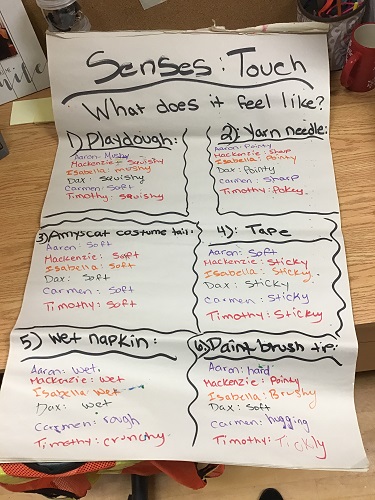 Senses: Touch
What does it feel like?
1) Playdough:
Aaron: Mushy
Mackenzie: Squishy
Isabella: mushy
Dax: squishy
Carmen: Soft
Timothy: squishy
2) Yarn needle:
Aaron: Pointy
Mackenzie: Sharp
Isabella: Pointy
Dax: Pointy
Carmen: sharp
Timothy: Pokey
3) Amyscat costume tail:
Aaron: Soft
Mackenzie: Soft
Isabella: Soft
Dax: Soft
Carmen: Soft
Timothy: Soft
4): Tape
Aaron: Soft
Mackenzie: Sticky
Isabella: Sticky
Dax: Sticky
Carmen: Sticky
Timothy: Sticky
5) Wet napkin:
Aaron: Wet
Mackenzie: Wet
Isabella: Wet
Dax: Wet
Carmen: rough
Timothy: crunchy
6) Paint brush tip:
Aaron: hard
Mackenzie: Pointy
Isabella: Brushy
Dax: Soft
Carmen: hugging
Timothy: Tickly